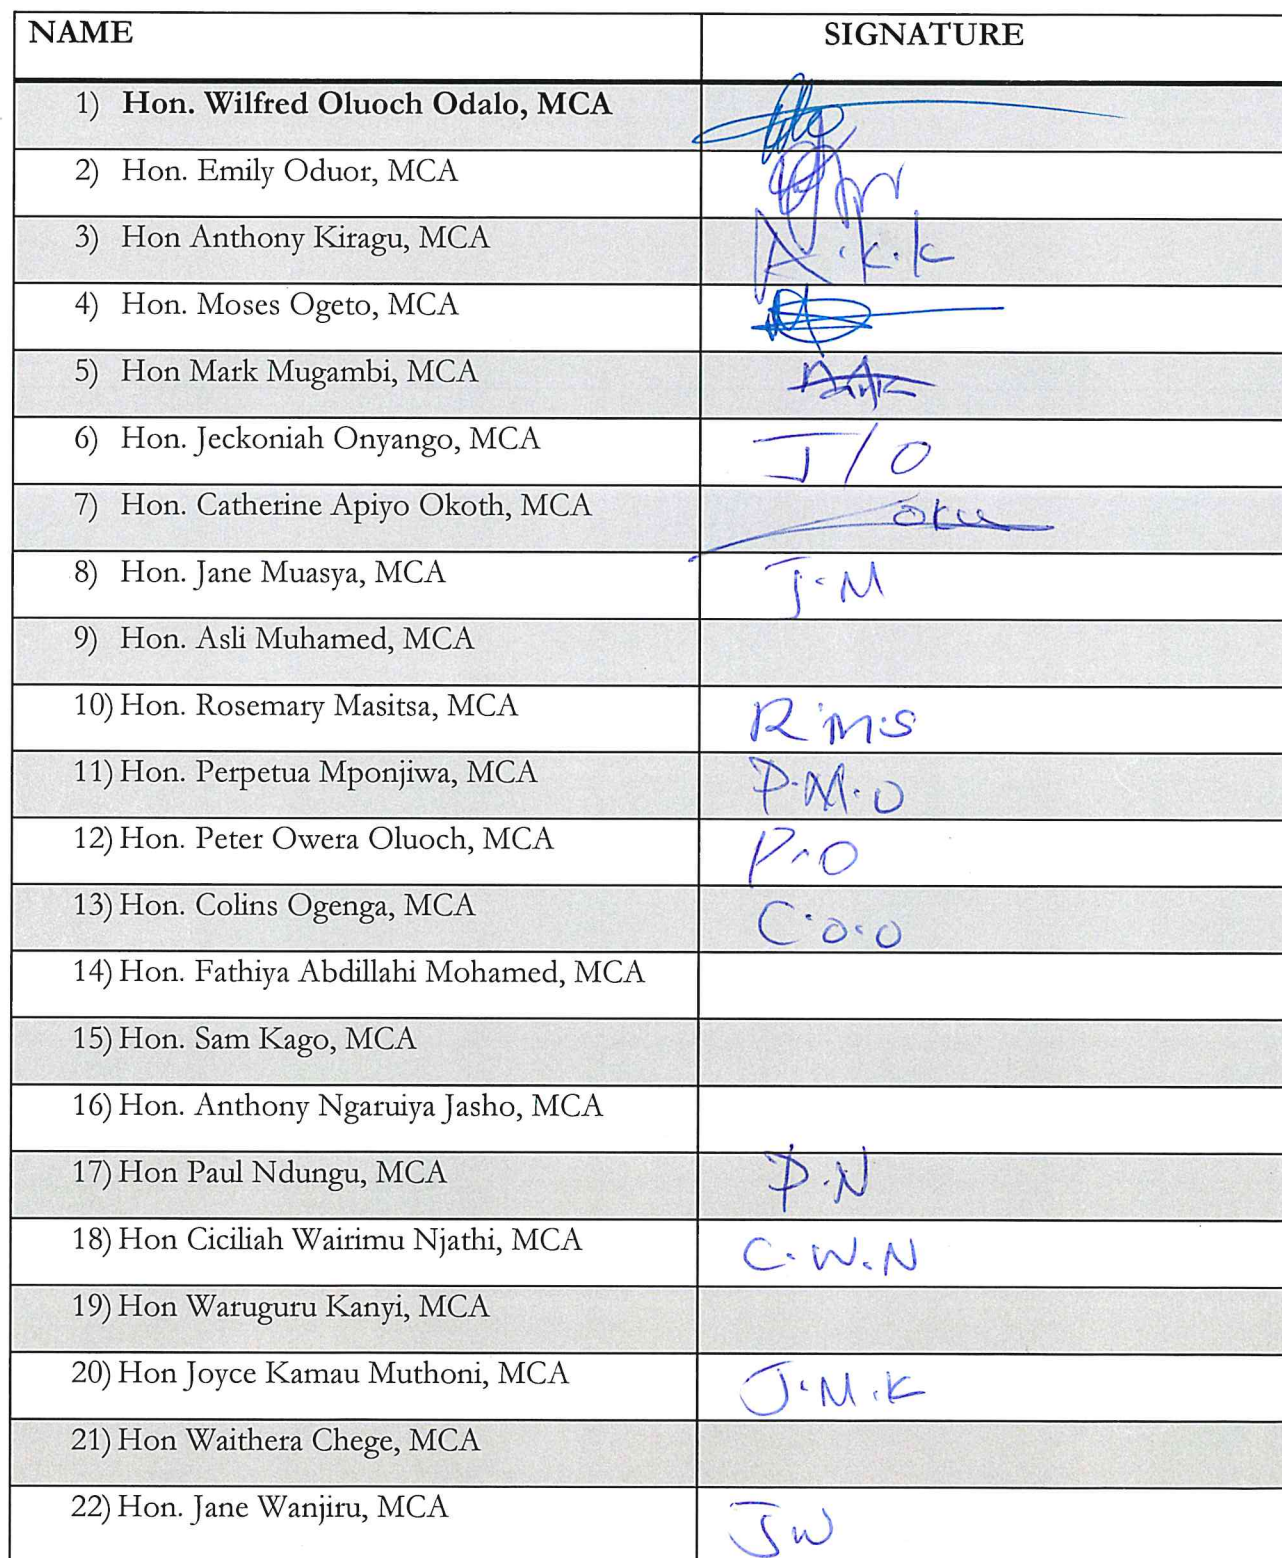 NAME SIGNATURE
1) Hon. Wilfred Oluoch Odalo, MCA
2) Hon. Emily Oduor, MCA
3) Hon Anthony Kiragu, MCA A.k.k
4) Hon. Moses Ogeto, MCA
5) Hon Mark Mugambi, MCA
6) Hon. Jeckoniah Onyango, MCA J/O
7) Hon. Catherine Apiyo Okoth, MCA
8) Hon. Jane Muasya, MCA J.M
9) Hon. Asli Muhamed, MCA
10) Hon. Rosemary Masitsa, MCA R.M.S
11) Hon. Perpetua Mponjiwa, MCA P.M.O
12) Hon. Peter Owera Oluoch, MCA P.O
13) Hon. Colins Ogenga, MCA C.O.O
14) Hon. Fathiya Abdillahi Mohamed, MCA
15) Hon. Sam Kago, MCA
16) Hon. Anthony Ngaruiya Jasho, MCA
17) Hon Paul Ndungu, MCA P.N
18) Hon Ciciliah Wairimu Njathi, MCA C.W.N
19) Hon Waruguru Kanyi, MCA
20) Hon Joyce Kamau Muthoni, MCA J.M.K
21) Hon Waithera Chege, MCA
22) Hon. Jane Wanjiru, MCA JW